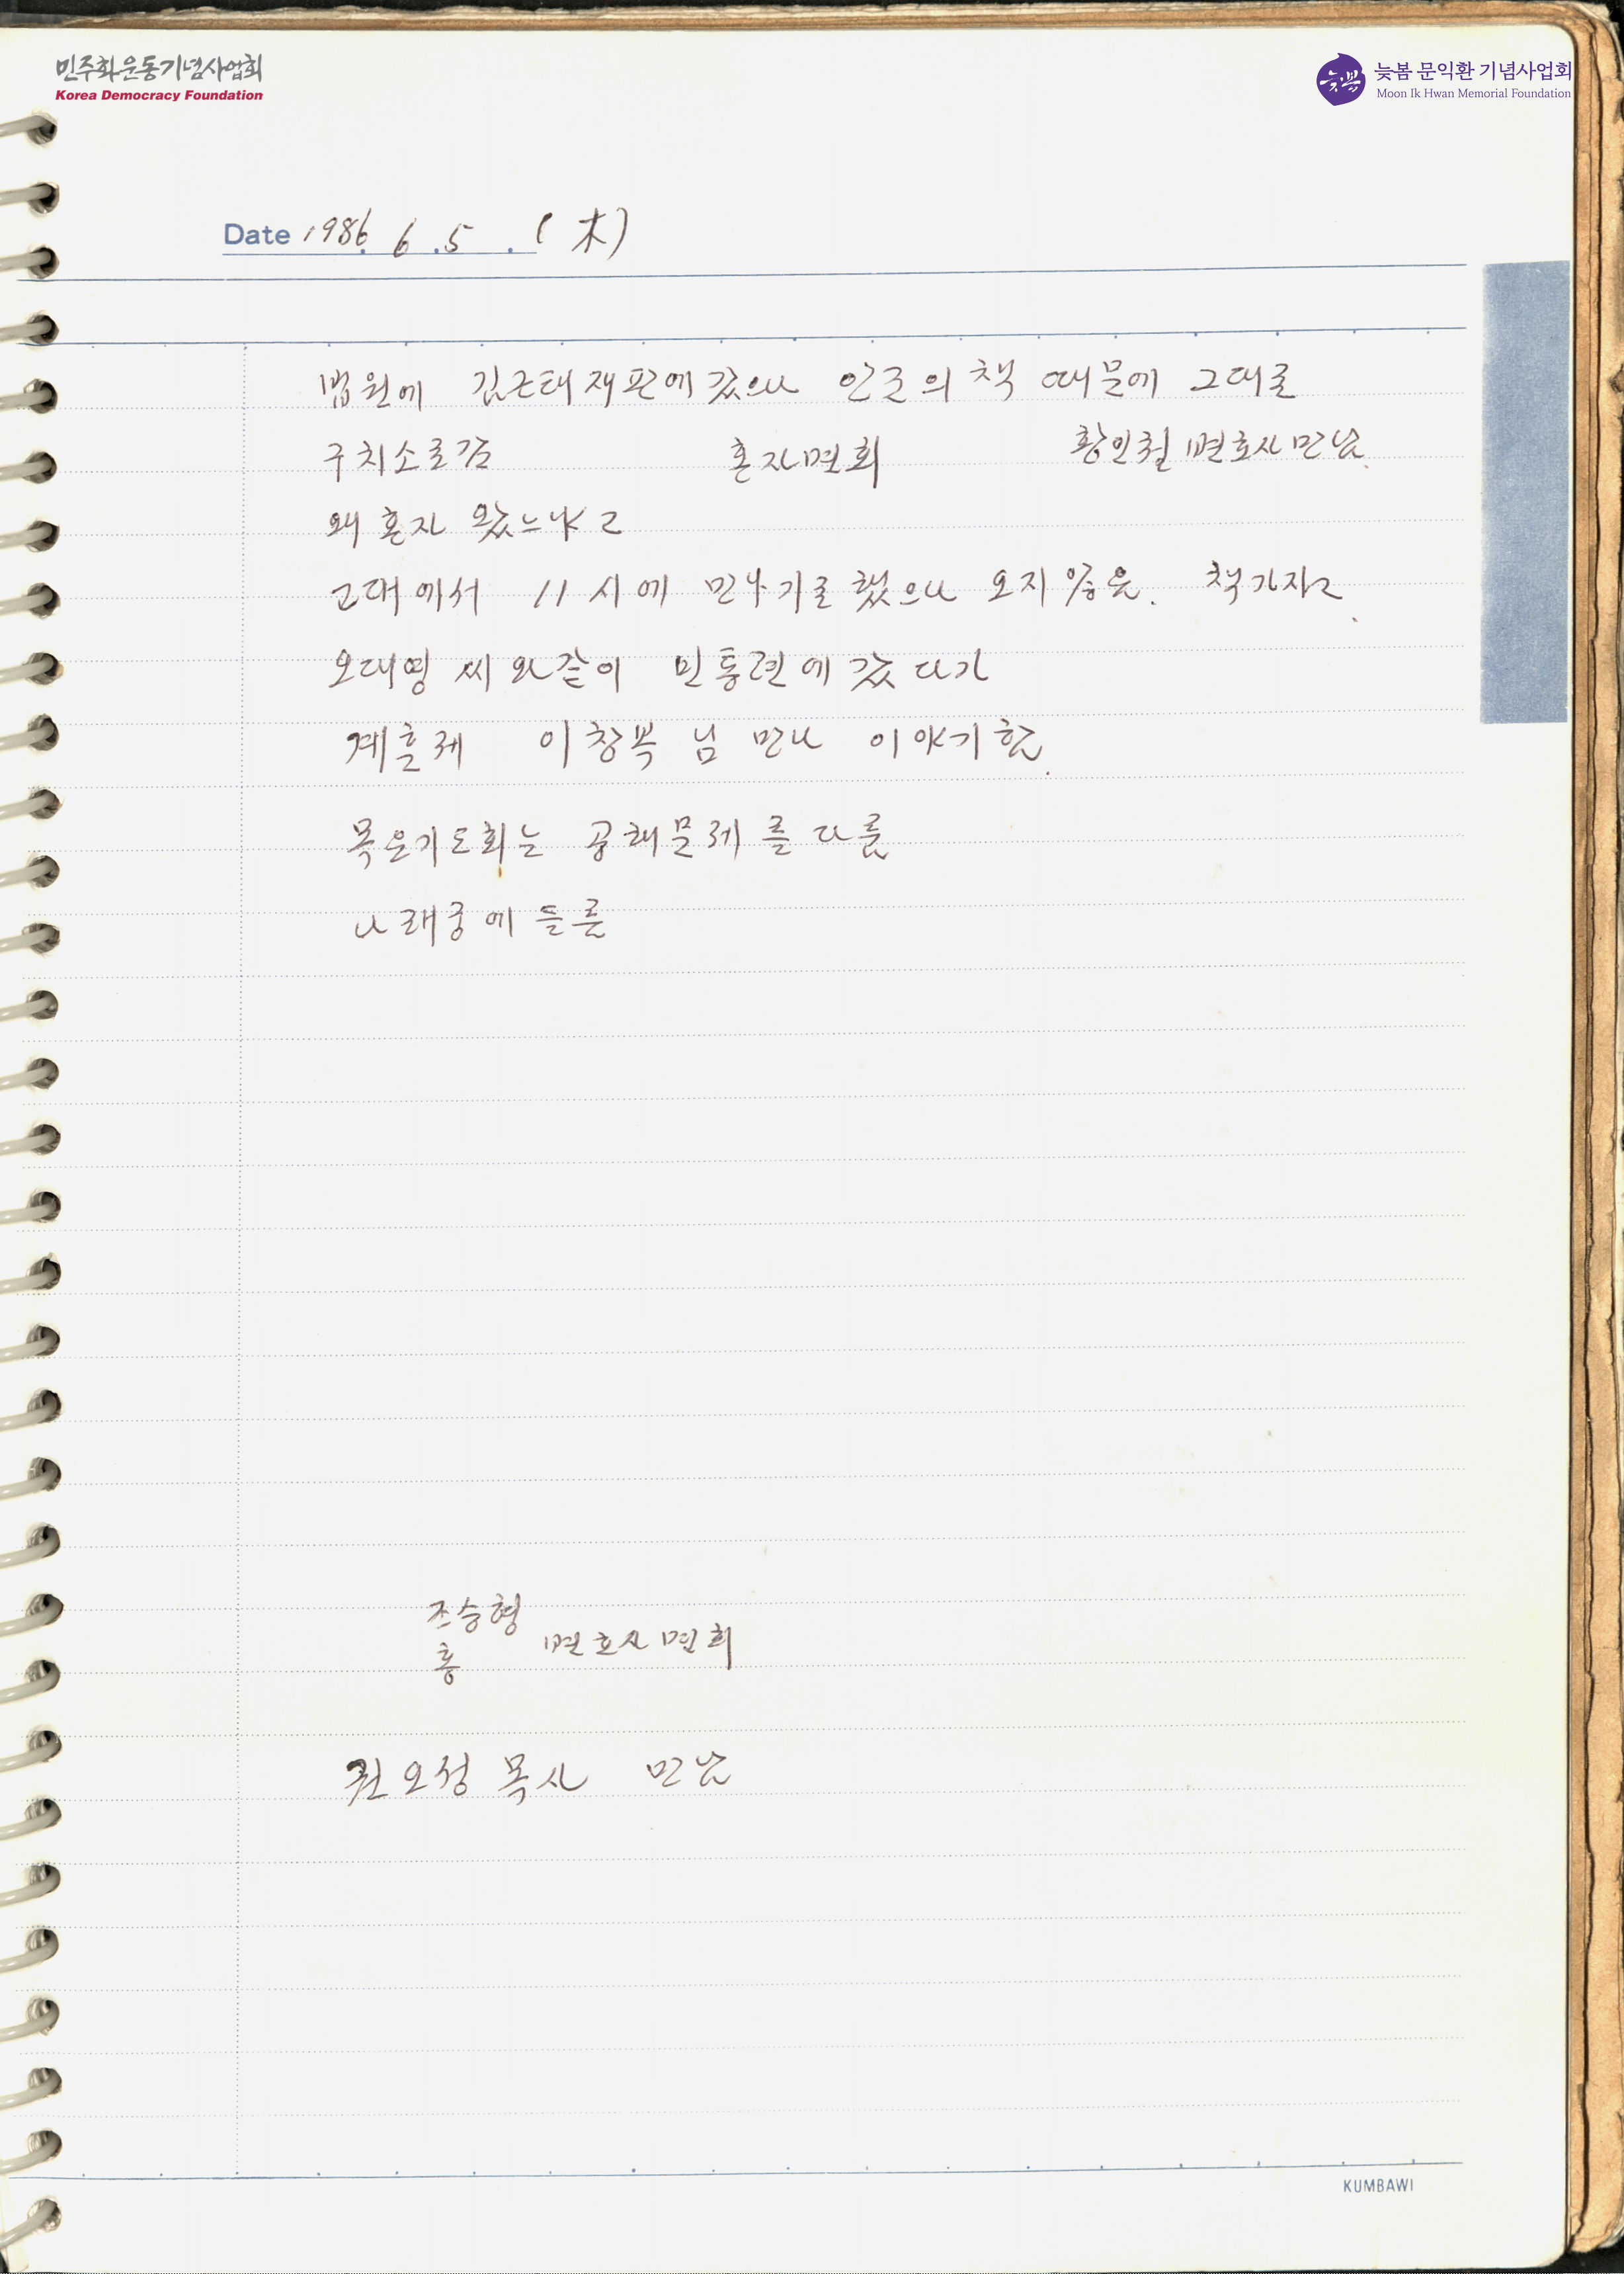 민주화운동기념사업회
Korea Democracy Foundation
늦봄
늦봄 문익환 기념사업회
Moon Ik Hwan Memorial Foundation
Date 1986. 6. 5. (木)
법원에 김근태재판에 갔으나 안군의 책 때문에 그대로
구치소로감 혼자면회 황인철 변호사 만남.
왜 혼자 왔느냐고
그대에서 11시에 만나기로 했으나 오지 않음. 책가지고
오대영 씨와같이 민통련에 갔다가
계훈제 이창복 님 만나 이야기함.
목요기도회는 공해문제를 다룸
나래궁에 들름
조승형
홍 변호사 면회
권오성 목사 만남
KUMBAWI